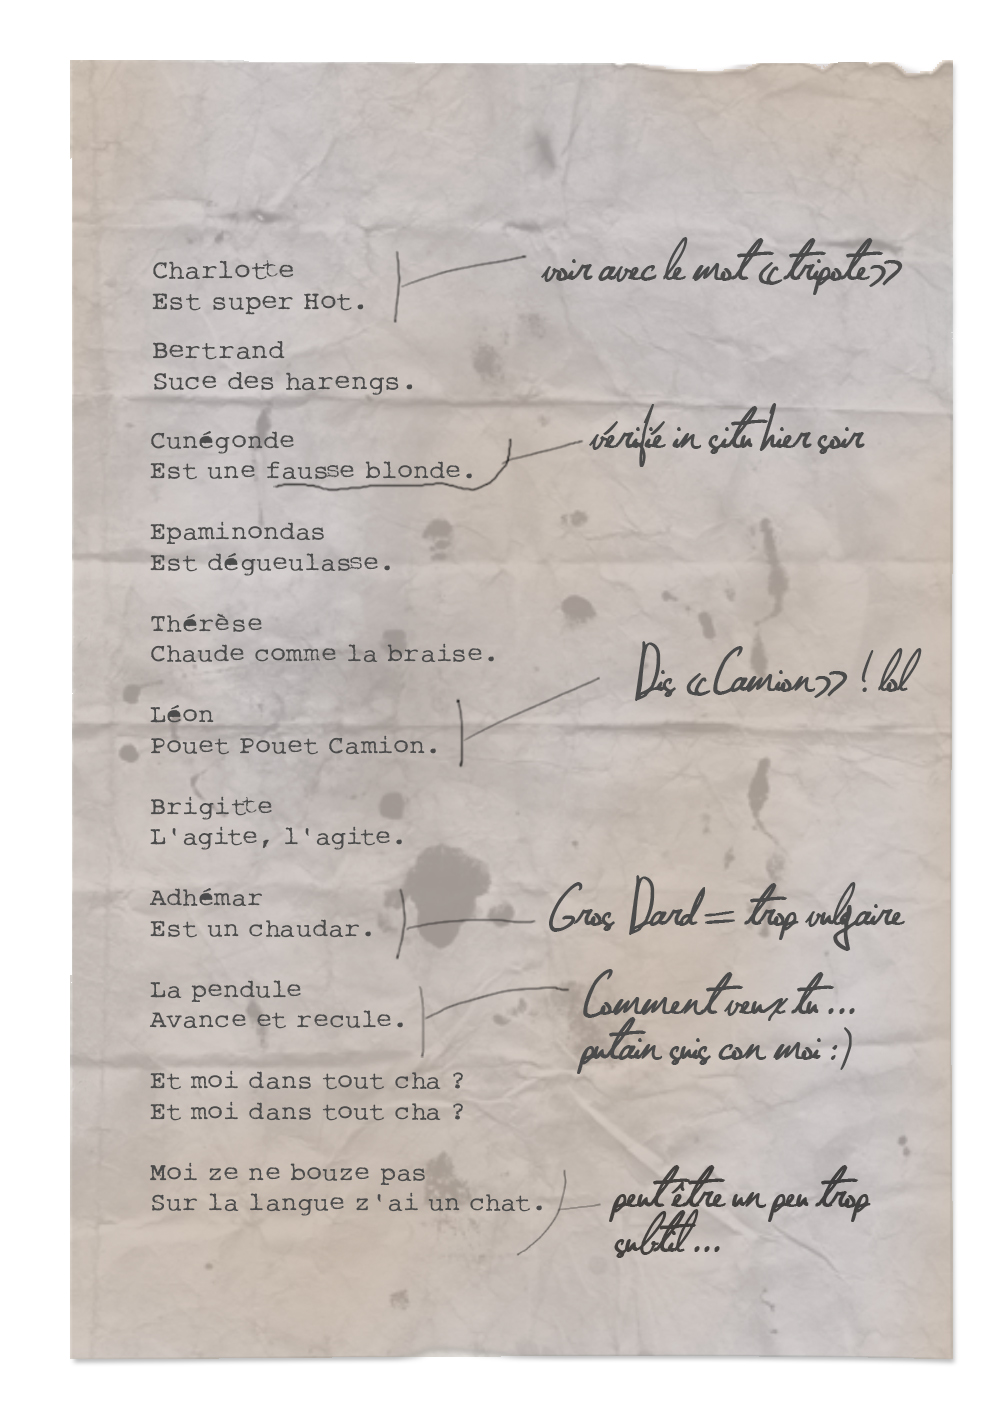 Charlotte
Est super Hot.
voir avec le mot «tripote»
Bertrand
Suce des harengs.
Cunégonde
Est une fausse blonde.
vérifié in situ hier soir
Epaminondas
Est dégueulasse.
Thérèse
Chaude comme la braise.
Léon
Pouet Pouet Camion.
Dis «Camion» ! lol
Brigitte
L'agite, l'agite.
Adhémar
Est un chaudar.
Gros Dard = trop vulgaire
La pendule
Avance et recule.
Comment veux tu ...
putain suis con moi :)
Et moi dans tout cha ?
Et moi dans tout cha ?
Moi ze ne bouze pas
Sur la langue z'ai un chat.
peut être un peu trop
subtil ...